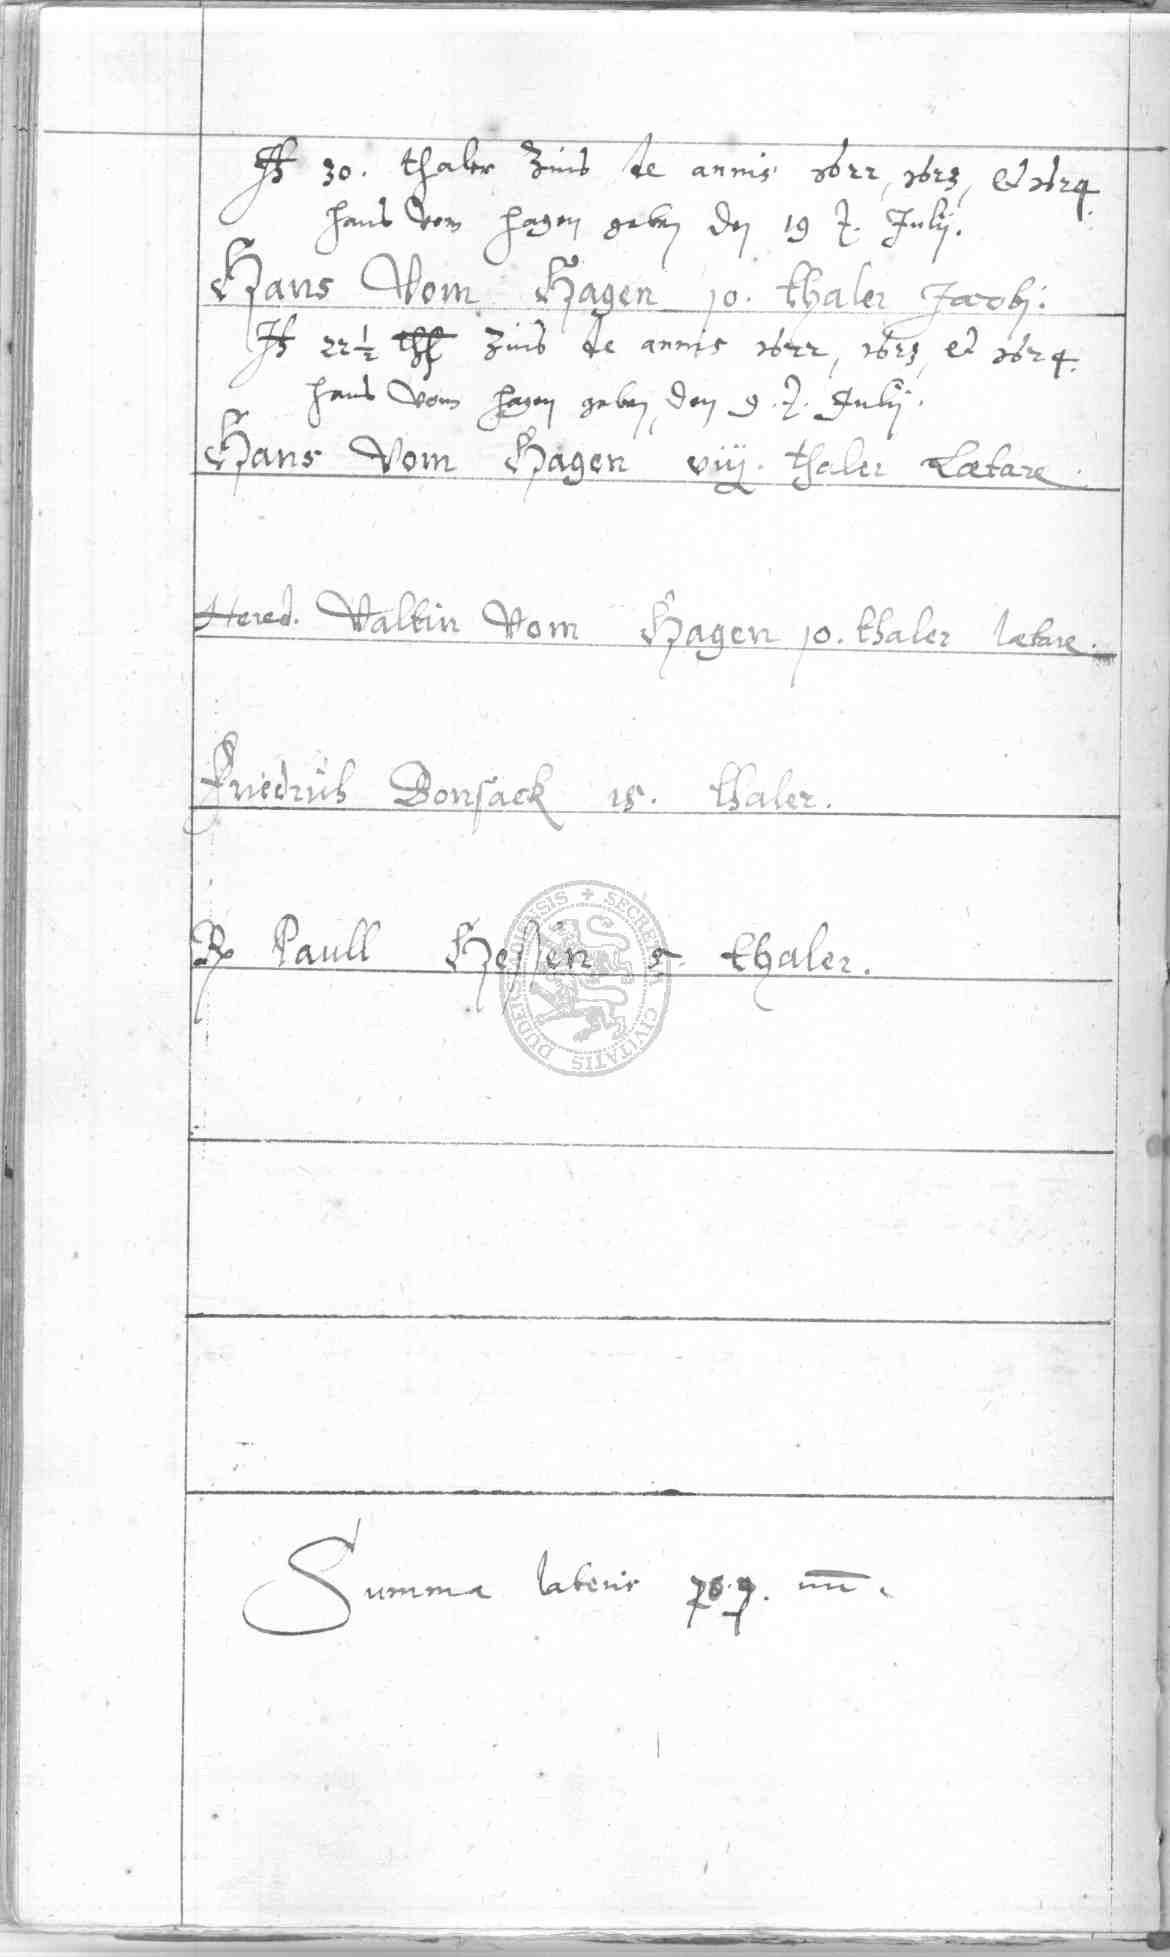 It 30. thaler Zins de annis 1622, 1623, et 1624.
Hans Vom Hagen geben den 19 t. Julij.
Hans Vom Hagen 10. thaler Jacobi.
It 22½ Zins de annis 1622, 1623, et 1624.
Hans Vom Hagen geben den 9. t. Julij.
Hans Vom Hagen viij. thaler Lætare
Hered. Valtin Vom Hagen 10. thaler lætare.
Friedrich Bonsack 15. thaler.
Paull Hessen 5 thaler.
SECRETUM CIVITATIS DUDERSTADIENSIS
Summa lateris